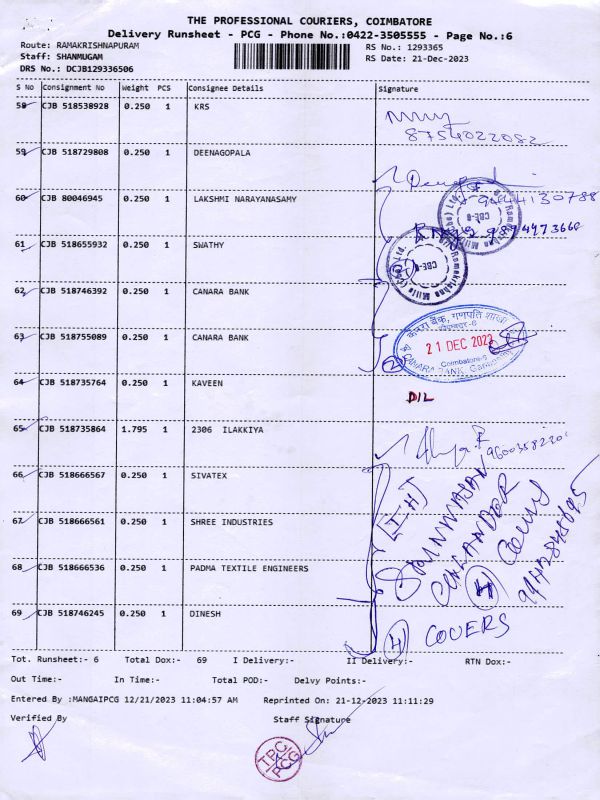 THE PROFESSIONAL COURIERS, COIMBATORE
Delivery Runsheet - PCG - Phone No.:0422-3505555 - Page No.:6
Route: RAMAKRISHNAPURAM
RS No.: 1293365
Staff: SHANMUGAM
RS Date: 21-Dec-2023
DRS No.: DCJB129336506
S No Consignment No Weight PCS Consignee Details Signature
58 CJB 518538928 0.250 1 KRS
8754022082
59 CJB 518729808 0.250 1 DEENAGOPALA
60 CJB 80046945 0.250 1 LAKSHMI NARAYANASAMY
9444130788
61 CJB 518655932 0.250 1 SWATHY
62 CJB 518746392 0.250 1 CANARA BANK
63 CJB 518755089 0.250 1 CANARA BANK
21 DEC 2023
Coimbatore-6
64 CJB 518735764 0.250 1 KAVEEN
65 CJB 518735864 1.795 1 2306 ILAKKIYA
66 CJB 518666567 0.250 1 SIVATEX
67 CJB 518666561 0.250 1 SHREE INDUSTRIES
68 CJB 518666536 0.250 1 PADMA TEXTILE ENGINEERS
69 CJB 518746245 0.250 1 DINESH
4 COVERS
Tot. Runsheet:- 6 Total Dox:- 69 I Delivery:- II Delivery:- RTN Dox:-
Out Time:- In Time:- Total POD:- Delvy Points:-
Entered By :MANGAIPCG 12/21/2023 11:04:57 AM Reprinted On: 21-12-2023 11:11:29
Verified By Staff Signature
TPC
PCG